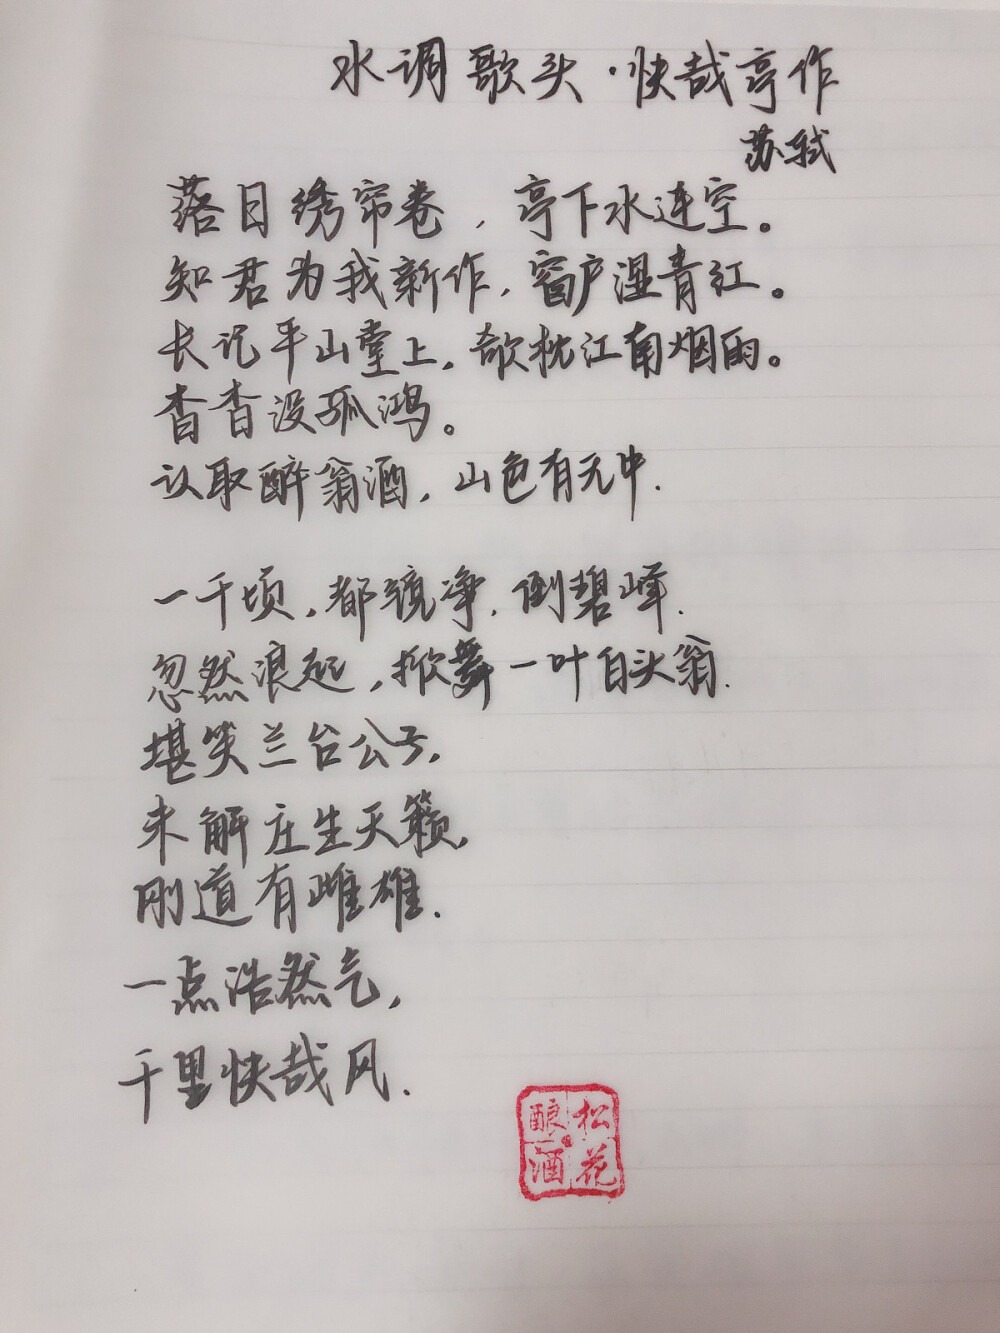 水调歌头·快哉亭作
苏轼
落日绣帘卷，亭下水连空。
知君为我新作，窗户湿青红。
长记平山堂上，欹枕江南烟雨。
杳杳没孤鸿。
认取醉翁酒，山色有无中.
一千顷，都镜净，倒碧峰.
忽然浪起，掀舞一叶白头翁.
堪笑兰台公子，
未解庄生天籁，
刚道有雌雄.
一点浩然气，
千里快哉风.
松花
酿酒